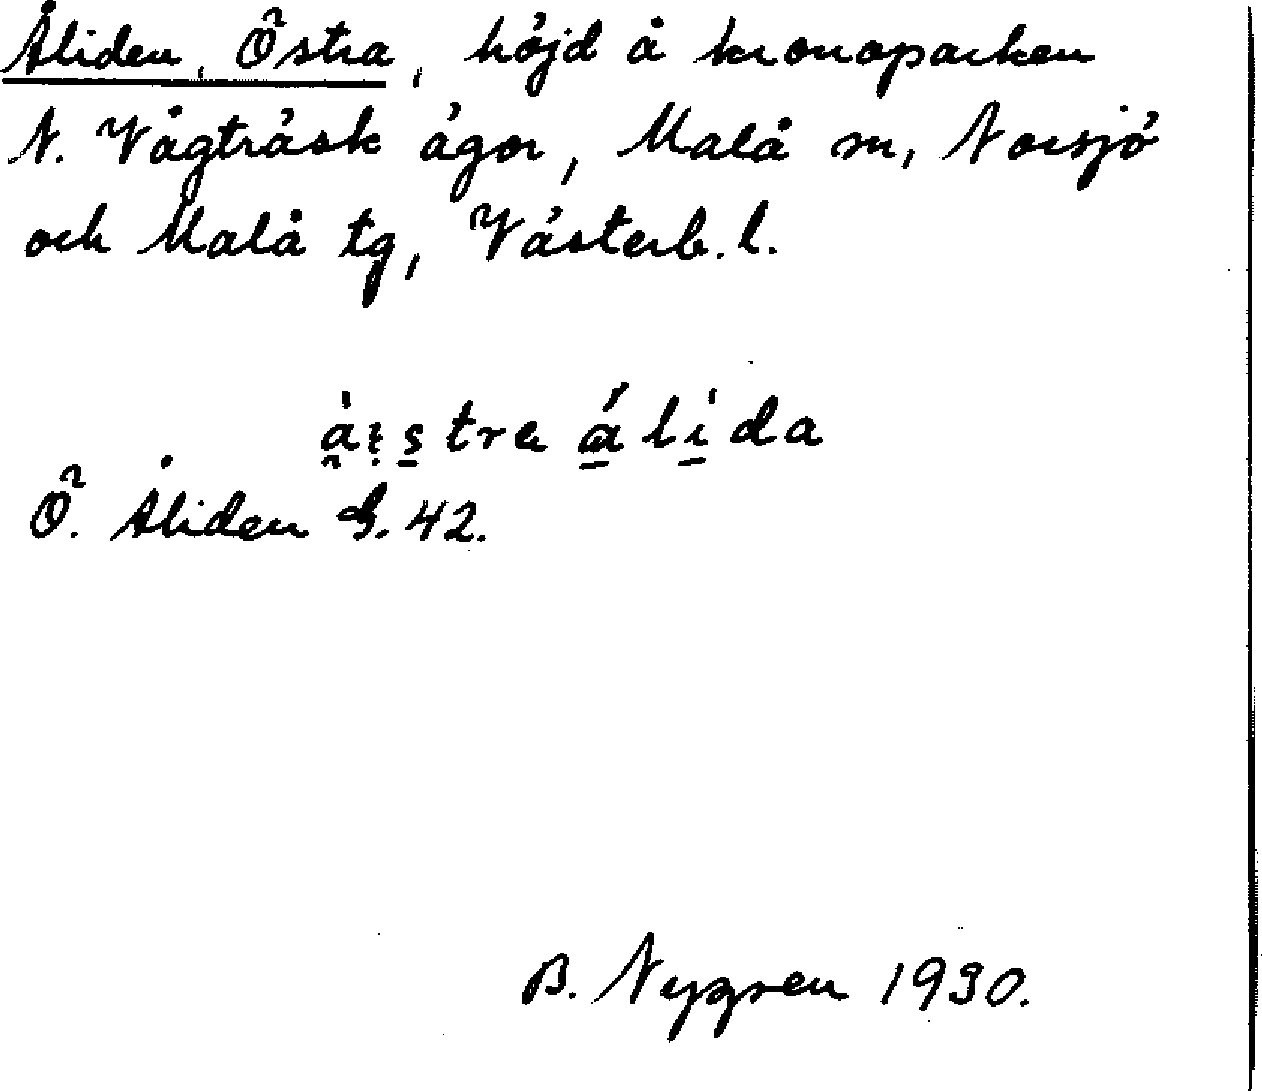 Åliden, Östra, höjd å kronoparken
N. Vägträsk ägor, Malå sn, Norsjö
och Malå tg, Västerb. l.
àistra álìda
Ö. Åliden G. 42.
B. Nygren 1930.